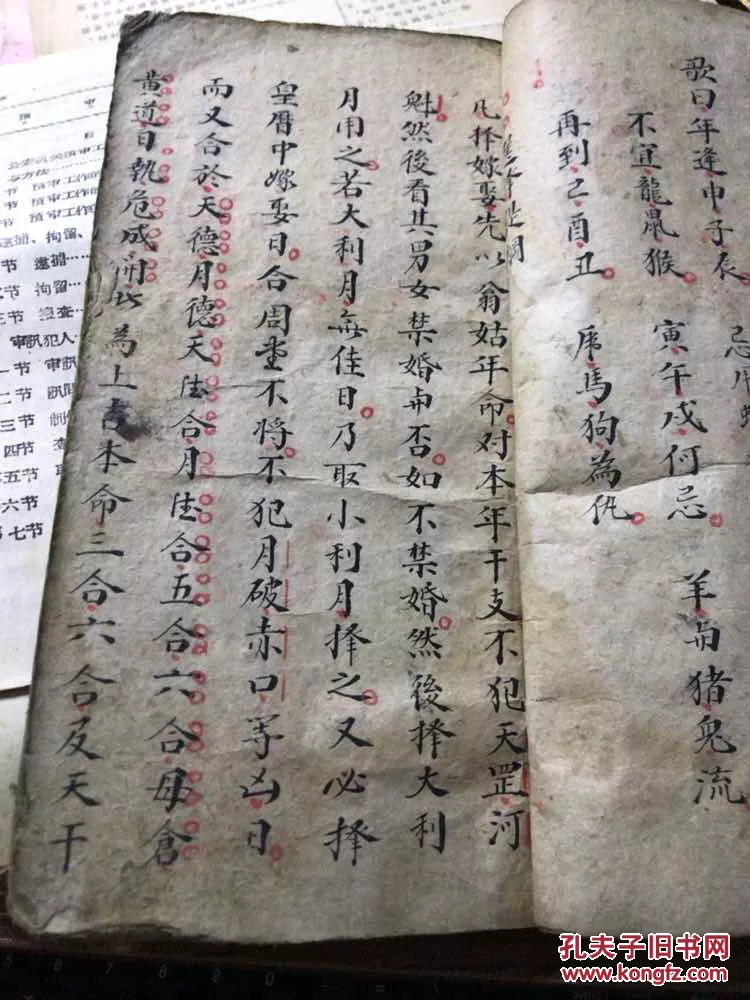 歌曰年逢申子辰
不宜龍鼠猴 寅午戌何忌 羊与猪兔流
再到巳酉丑 虎馬狗為仇
凡择嫁娶先以翁姑年命对本年干支不犯天罡河
魁然後看其男女禁婚与否如不禁婚然後择大利
月用之若大利月無佳日乃取小利月择之又必择
皇曆中嫁娶日合周堂不将不犯月破赤口等凶日
而又合於天德月德天德合月德合五合六合母倉
黄道日執危成開此為上吉本命三合六合及天干
节 预审工作
节 预审工作
逮捕、拘留
节 逮捕
节 拘留
审讯犯人
一节 审讯
二节 讯问
三节
四节
五节
六节
七节
孔夫子旧书网
www.kongfz.com